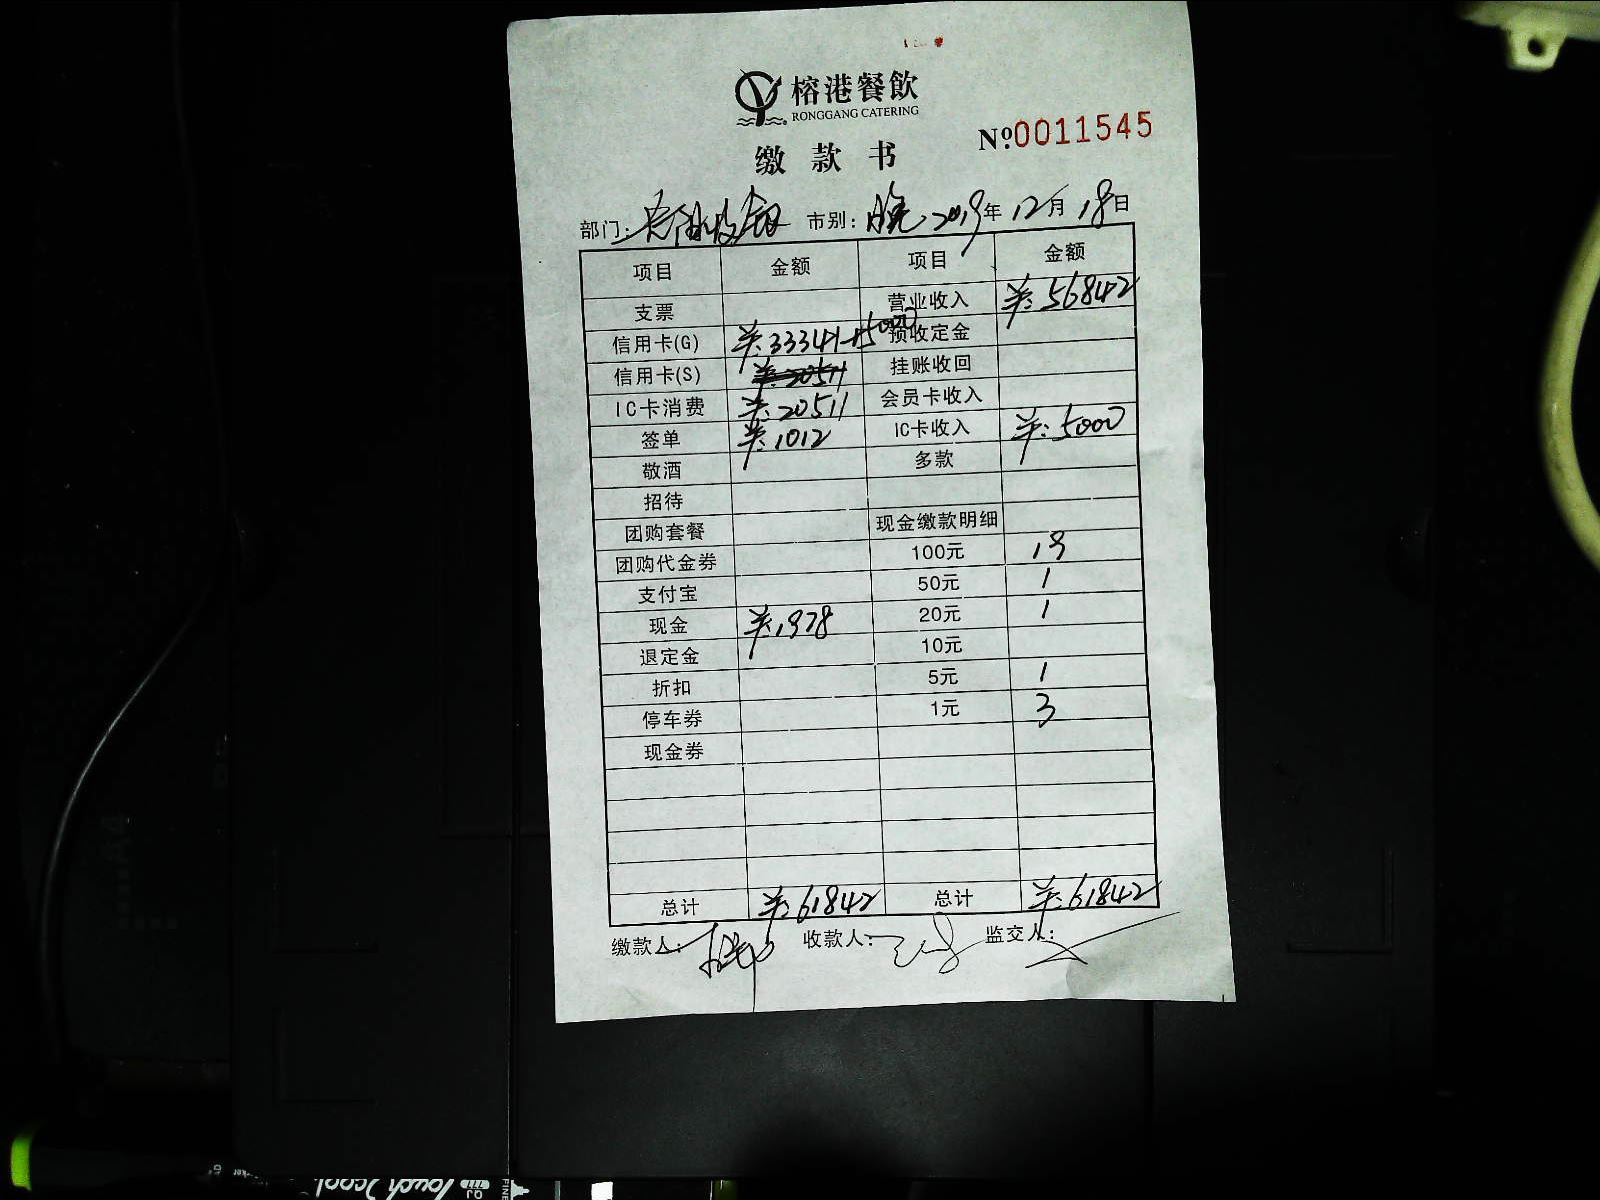 榕港餐飲
RONGGANG CATERING
№0011545
缴款书
部门： 市别：晚 2019年12月18日
项目 金额 项目 金额
支票 营业收入 ¥:56842
信用卡(G) ¥:33341+5000 预收定金
信用卡(S) ¥:20511 挂账收回
IC卡消费 ¥:20511 会员卡收入
签单 ¥:1012 IC卡收入 ¥:5000
敬酒 多款
招待
团购套餐 现金缴款明细
团购代金券 100元 19
支付宝 50元 1
现金 ¥:1978 20元 1
退定金 10元
折扣 5元 1
停车券 1元 3
现金券
总计 ¥:61842 总计 ¥:61842
缴款人： 收款人： 监交人：